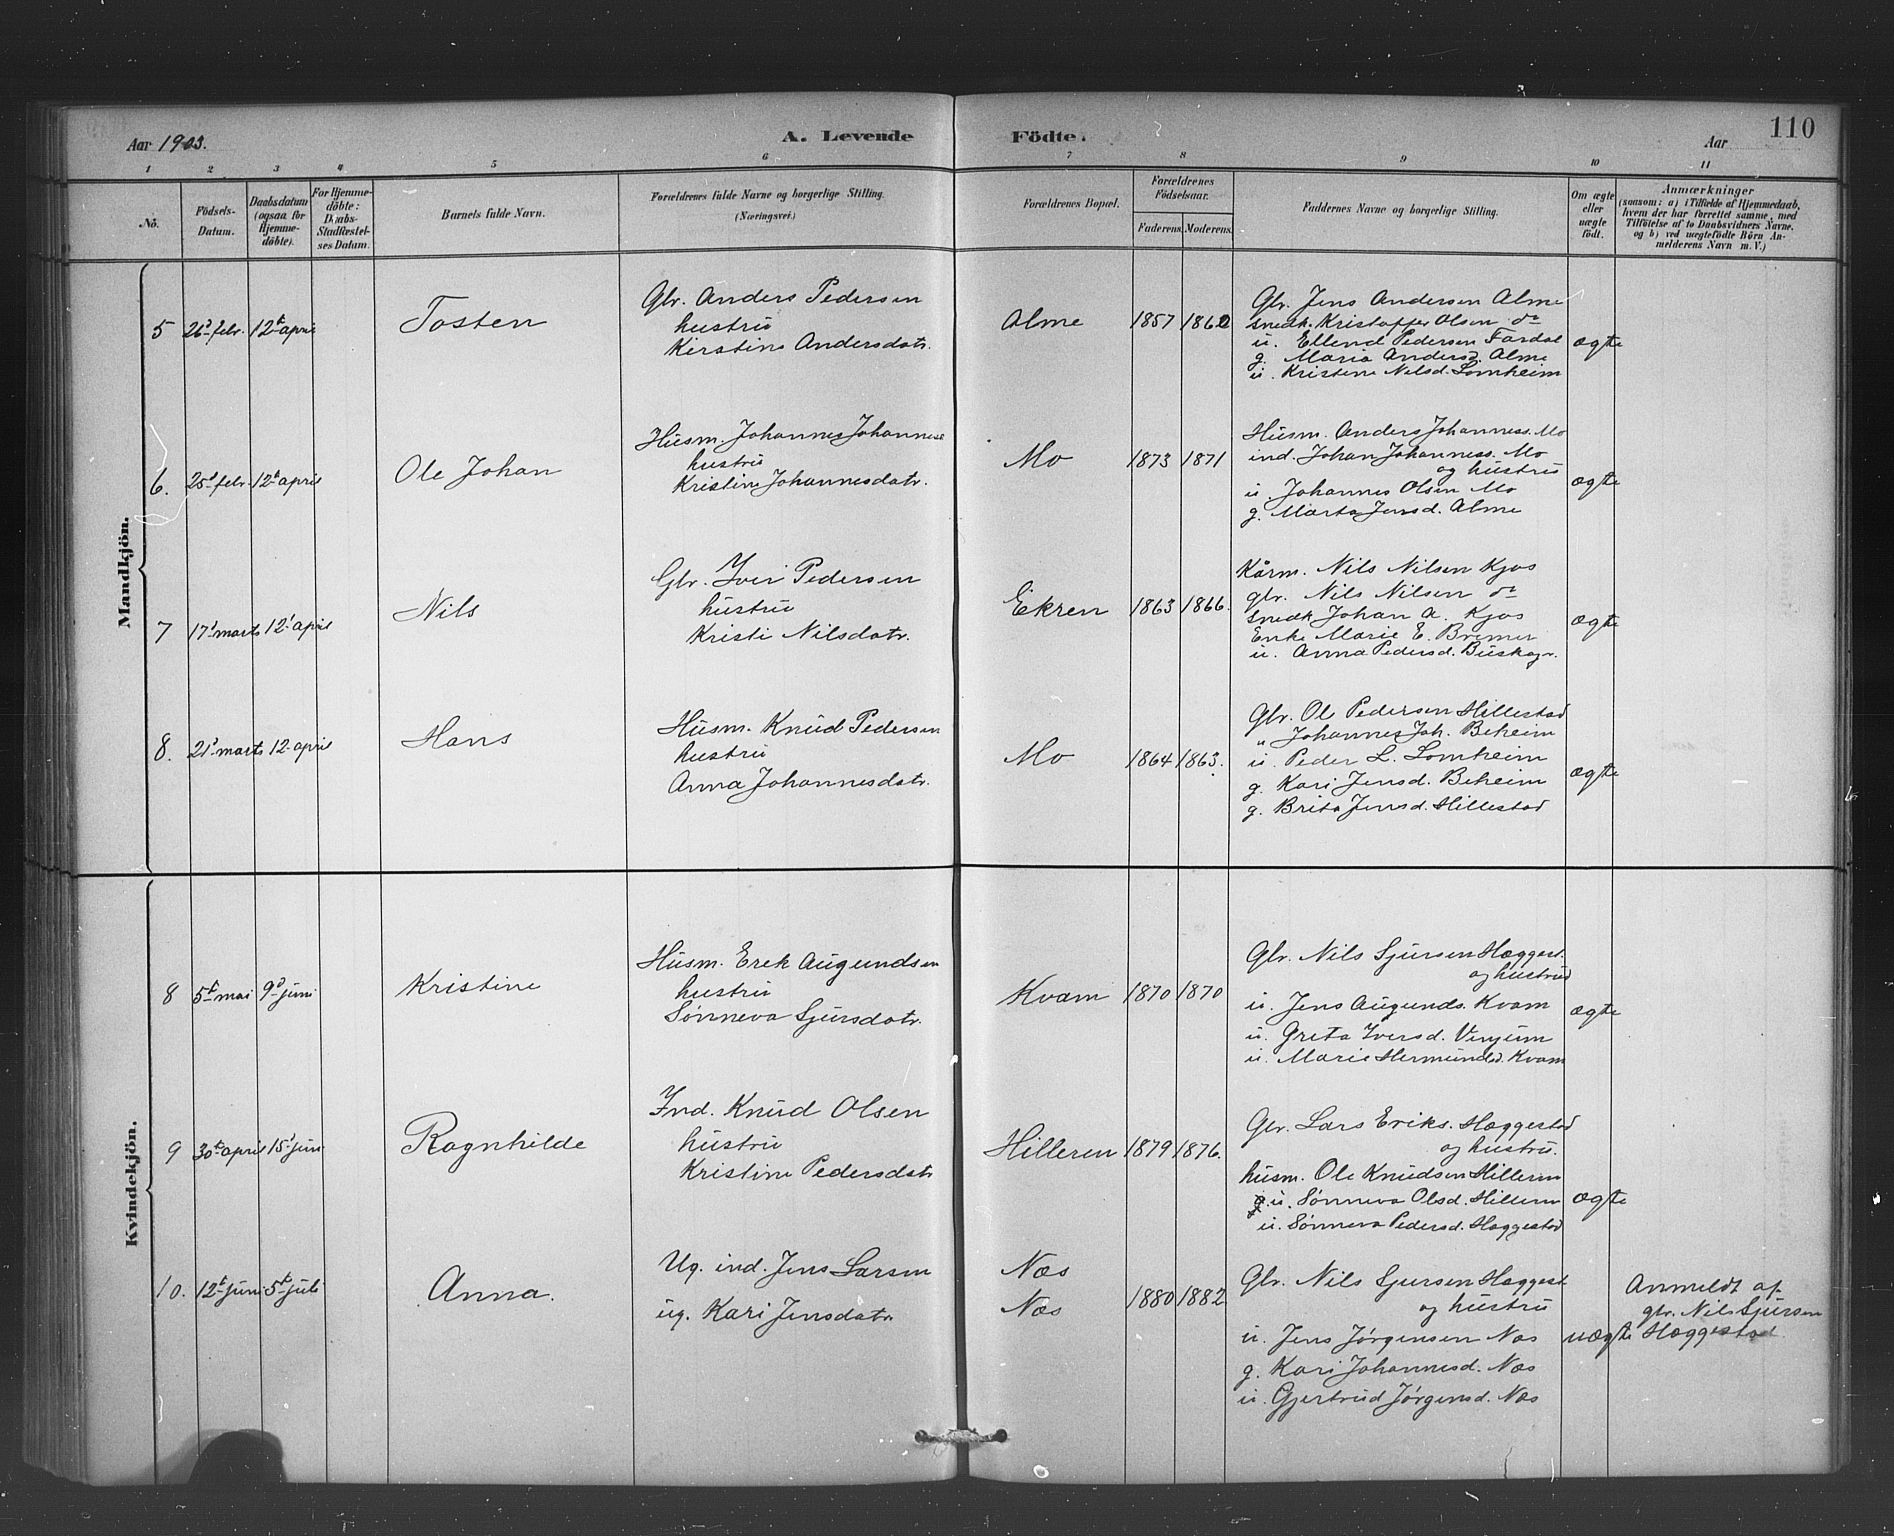 110
Aar 1903.
A. Levende Födte.
Aar
1 2 3 4 5 6 7 8 9 10 11
No.
Födsels-Datum.
Daabsdatum (ogsaa for Hjemme-döbte).
For Hjemme-döbte: Daabs-Stadfæstel-ses Datum.
Barnets fulde Navn.
Forældrenes fulde Navne og borgerlige Stilling. (Næringsvei.)
Forældrenes Bopæl.
Forældrenes Födselsaar.
Faderens. Moderens.
Faddernes Navne og borgerlige Stilling.
Om ægte eller uægte födt.
Anmærkninger
(saasom: a) i Tilfælde af Hjemmedaab,
hvem der har forrettet samme, med
Tilföielse af to Daabsvidners Navne.
og b) ved uægtefödte Börn An-
melderens Navn m. V.)
Mandkjön.
5 26d febr. 12t april
Tosten
Gbr. Anders Pedersen
hustru
Kirstine Andersdatr.
Alme
1857 1862
Gbr. Jens Andersen Alme
snedk. Kristoffer Olsen do
u. Ellend Pedersen Fardal
g. Maria Andersd. Alme
u. Kristine Nilsd. Lomheim
ægte
6. 25d febr. 12t april
Ole Johan
Husm. Johannes Johannese
hustru
Kristine Johannesdatr.
Mo
1873 1871
Husm. Anders Johanness. Mo
ind. Johan Johanness. Mo
og hustru
u. Johannes Olsen Mo
g. Marta Jensd. Alme
ægte
7 17d marts 12t april
Nils
Gbr. Iver Pedersen
hustru
Kristi Nilsdatr.
Ekren
1863 1866.
Kårm. Nils Nilsen Kjos
gbr. Nils Nilsen do
snedk Johan A. Kjos
Enke Marie E. Bremer
u. Anna Pedersd. Buskagr.
ægte
8. 21d marts 12 april
Hans
Husm. Knud Pedersen
hustru
Anna Johannesdatr.
Mo
1864 1863.
Gbr. Ole Pedersen Hillestad
" Johannes Joh. Beheim
u. Peder L. Lomheim
g. Kari Jensd. Beheim
g. Brita Jensd. Hillestad
ægte
Kvindekjön.
8 5t mai 9d juni
Kristine
Husm. Erek Augundsen
hustru
Sønneva Sjursdatr.
Kvam
1870 1870
Gbr. Nils Sjursen Hæggest.
og hustru
u. Jens Augunds. Kvam
u. Greta Iversd. Vinjum
u. Marie Hermundsd. Kvam
ægte
9 30t april 15d juni
Ragnhilde
Ind. Knud Olsen
hustru
Kristine Pedersdatr
Hilleren
1879 1876.
Gbr. Lars Eriks. Hæggestad
og hustru.
husm. Ole Knudsen Hilleren
u. Sønneva Olsd. Hilleren
u. Sønneva Pedersd. Hæggestad
ægte
10. 12t juni 5t juli
Anna.
Ug. ind. Jens Larsen
ug. Kari Jensdatr.
Næs
Næs
1880 1882
Gbr. Nils Sjursen Hæggest.
og hustru
u. Jens Jørgensen Næs
g. Kari Johannesd. Næs
u. Gjertrud Jørgensd. Næs
uægte
Anmeldt af
gbr. Nils Sjursen
Hæggestad